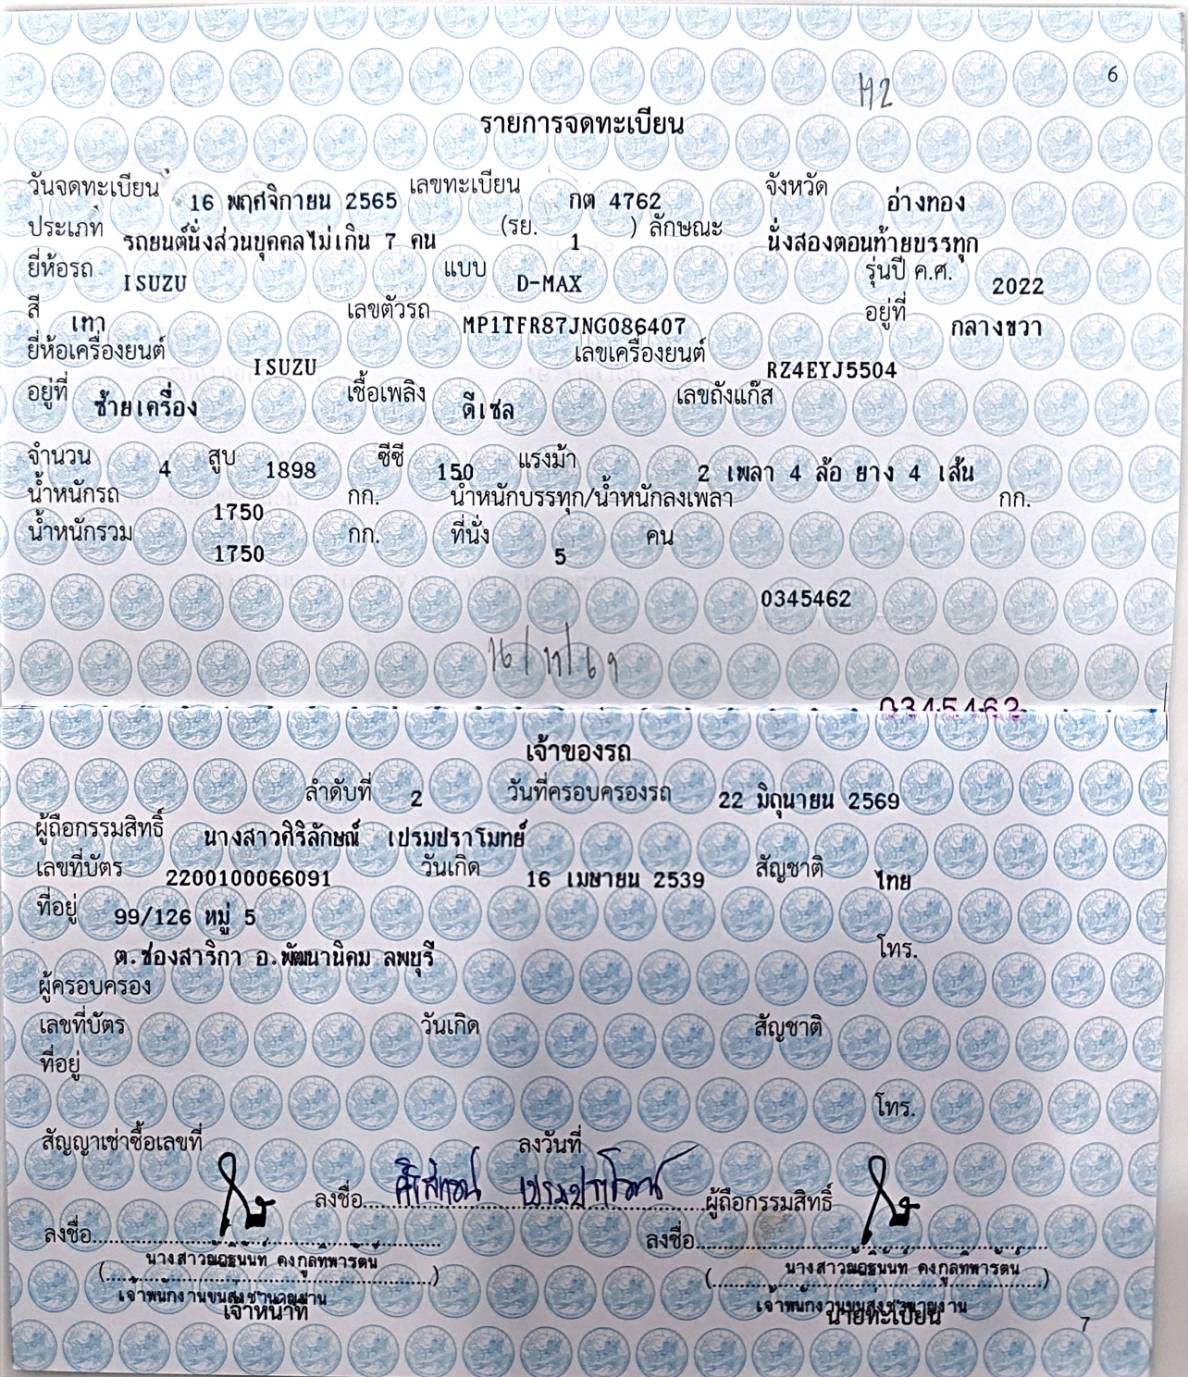 6
192
รายการจดทะเบียน
วันจดทะเบียน 16 พฤศจิกายน 2565 เลขทะเบียน กต 4762 จังหวัด อ่างทอง
ประเภท รถยนต์นั่งส่วนบุคคลไม่เกิน 7 คน (รย. 1 ) ลักษณะ นั่งสองตอนท้ายบรรทุก
ยี่ห้อรถ ISUZU แบบ D-MAX รุ่นปี ค.ศ. 2022
สี เทา เลขตัวรถ MP1TFR87JNG086407 อยู่ที่ กลางขวา
ยี่ห้อเครื่องยนต์ ISUZU เลขเครื่องยนต์ RZ4EYJ5504
อยู่ที่ ซ้ายเครื่อง เชื้อเพลิง ดีเซล เลขถังแก๊ส
จำนวน 4 สูบ 1898 ซีซี 150 แรงม้า 2 เพลา 4 ล้อ ยาง 4 เส้น
น้ำหนักรถ 1750 กก. น้ำหนักบรรทุก/น้ำหนักลงเพลา กก.
น้ำหนักรวม 1750 กก. ที่นั่ง 5 คน
0345462
16/11/69
0345462
เจ้าของรถ
ลำดับที่ 2 วันที่ครอบครองรถ 22 มิถุนายน 2569
ผู้ถือกรรมสิทธิ์ นางสาวศิริลักษณ์ เปรมปราโมทย์
เลขที่บัตร 2200100066091 วันเกิด 16 เมษายน 2539 สัญชาติ ไทย
ที่อยู่ 99/126 หมู่ 5
ต.ช่องสาริกา อ.พัฒนานิคม ลพบุรี โทร.
ผู้ครอบครอง
เลขที่บัตร วันเกิด สัญชาติ
ที่อยู่
โทร.
สัญญาเช่าซื้อเลขที่ ลงวันที่
ลงชื่อ ศิริลักษณ์ เปรมปราโมทย์ ผู้ถือกรรมสิทธิ์
ลงชื่อ ลงชื่อ
นางสาว คงกูลทิพารัตน์ นางสาว คงกูลทิพารัตน์
เจ้าพนักงานขนส่งชำนาญงาน เจ้าพนักงานขนส่งชำนาญงาน
เจ้าหน้าที่ นายทะเบียน
7